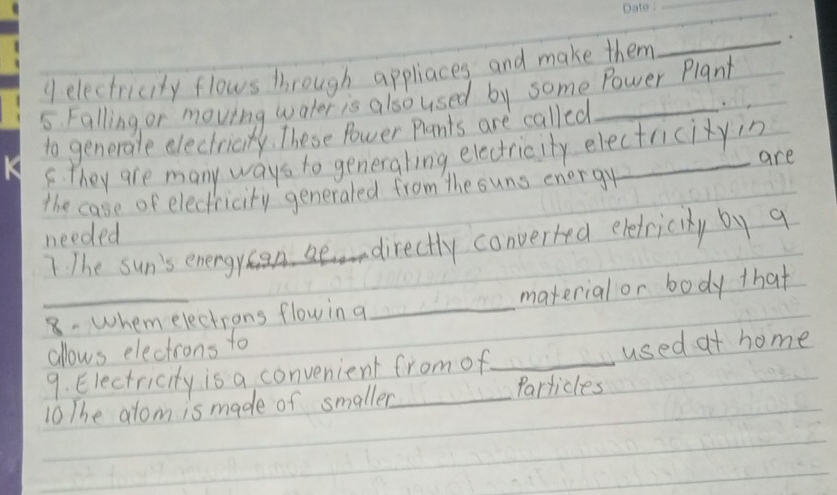 Date:
4) electricity flows through appliaces and make them ________.
5. Falling or moving water is also used by some Power Plant
to generate electricity. These Power Plants are called ________.
6. They are many ways to generating electricity electricity in
the case of electricity generated from the suns energy ________ are
needed
7. The sun's energy can be directly converted eletricity by a
________
8 - Whem electrons flow in a ________ material or body that
allows electrons to
9. Electricity is a convenient from of ________ used at home
10 The atom is made of smaller ________ Particles
K